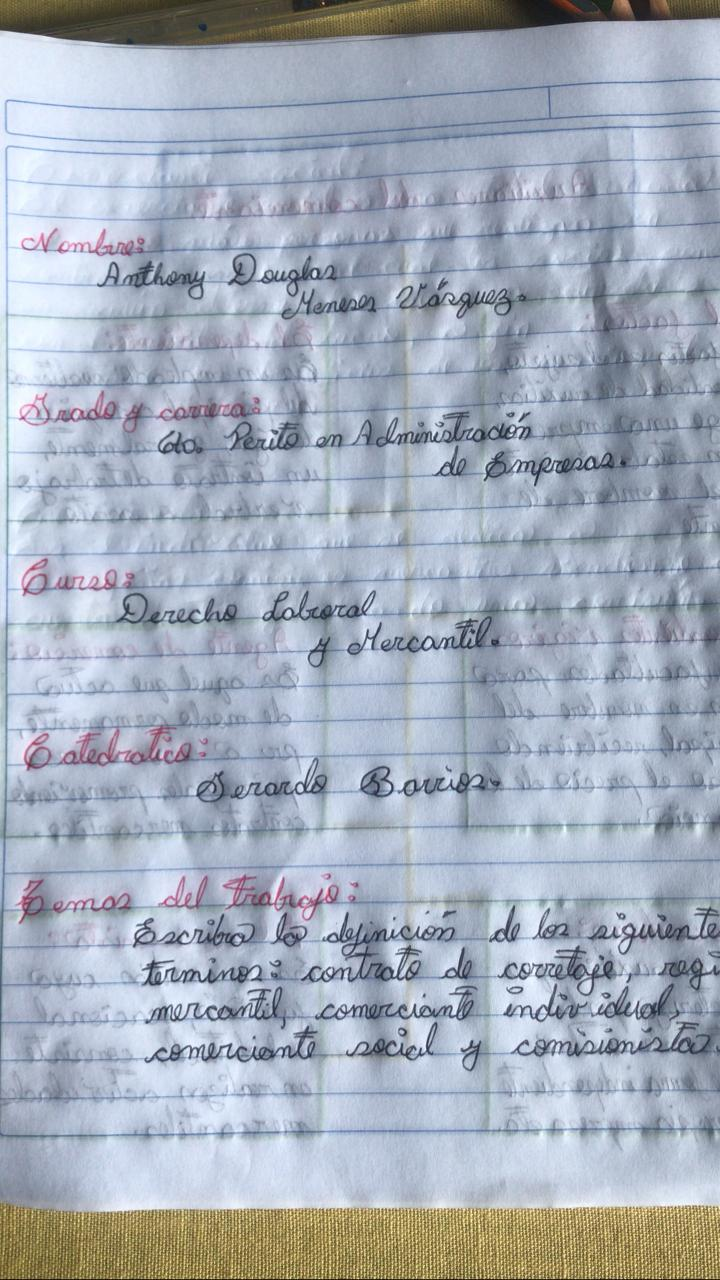 Nombre:
Anthony Douglas
Meneses Vásquez.
Grado y carrera:
6to. Perito en Administración
de Empresas.
Curso:
Derecho Laboral
y Mercantil.
Catedratico:
Gerardo Barrios.
Temas del trabajo:
Escriba la definición de los siguiente
terminos: contrato de corretaje, regi
mercantil, comerciante individual,
comerciante social y comisionista.